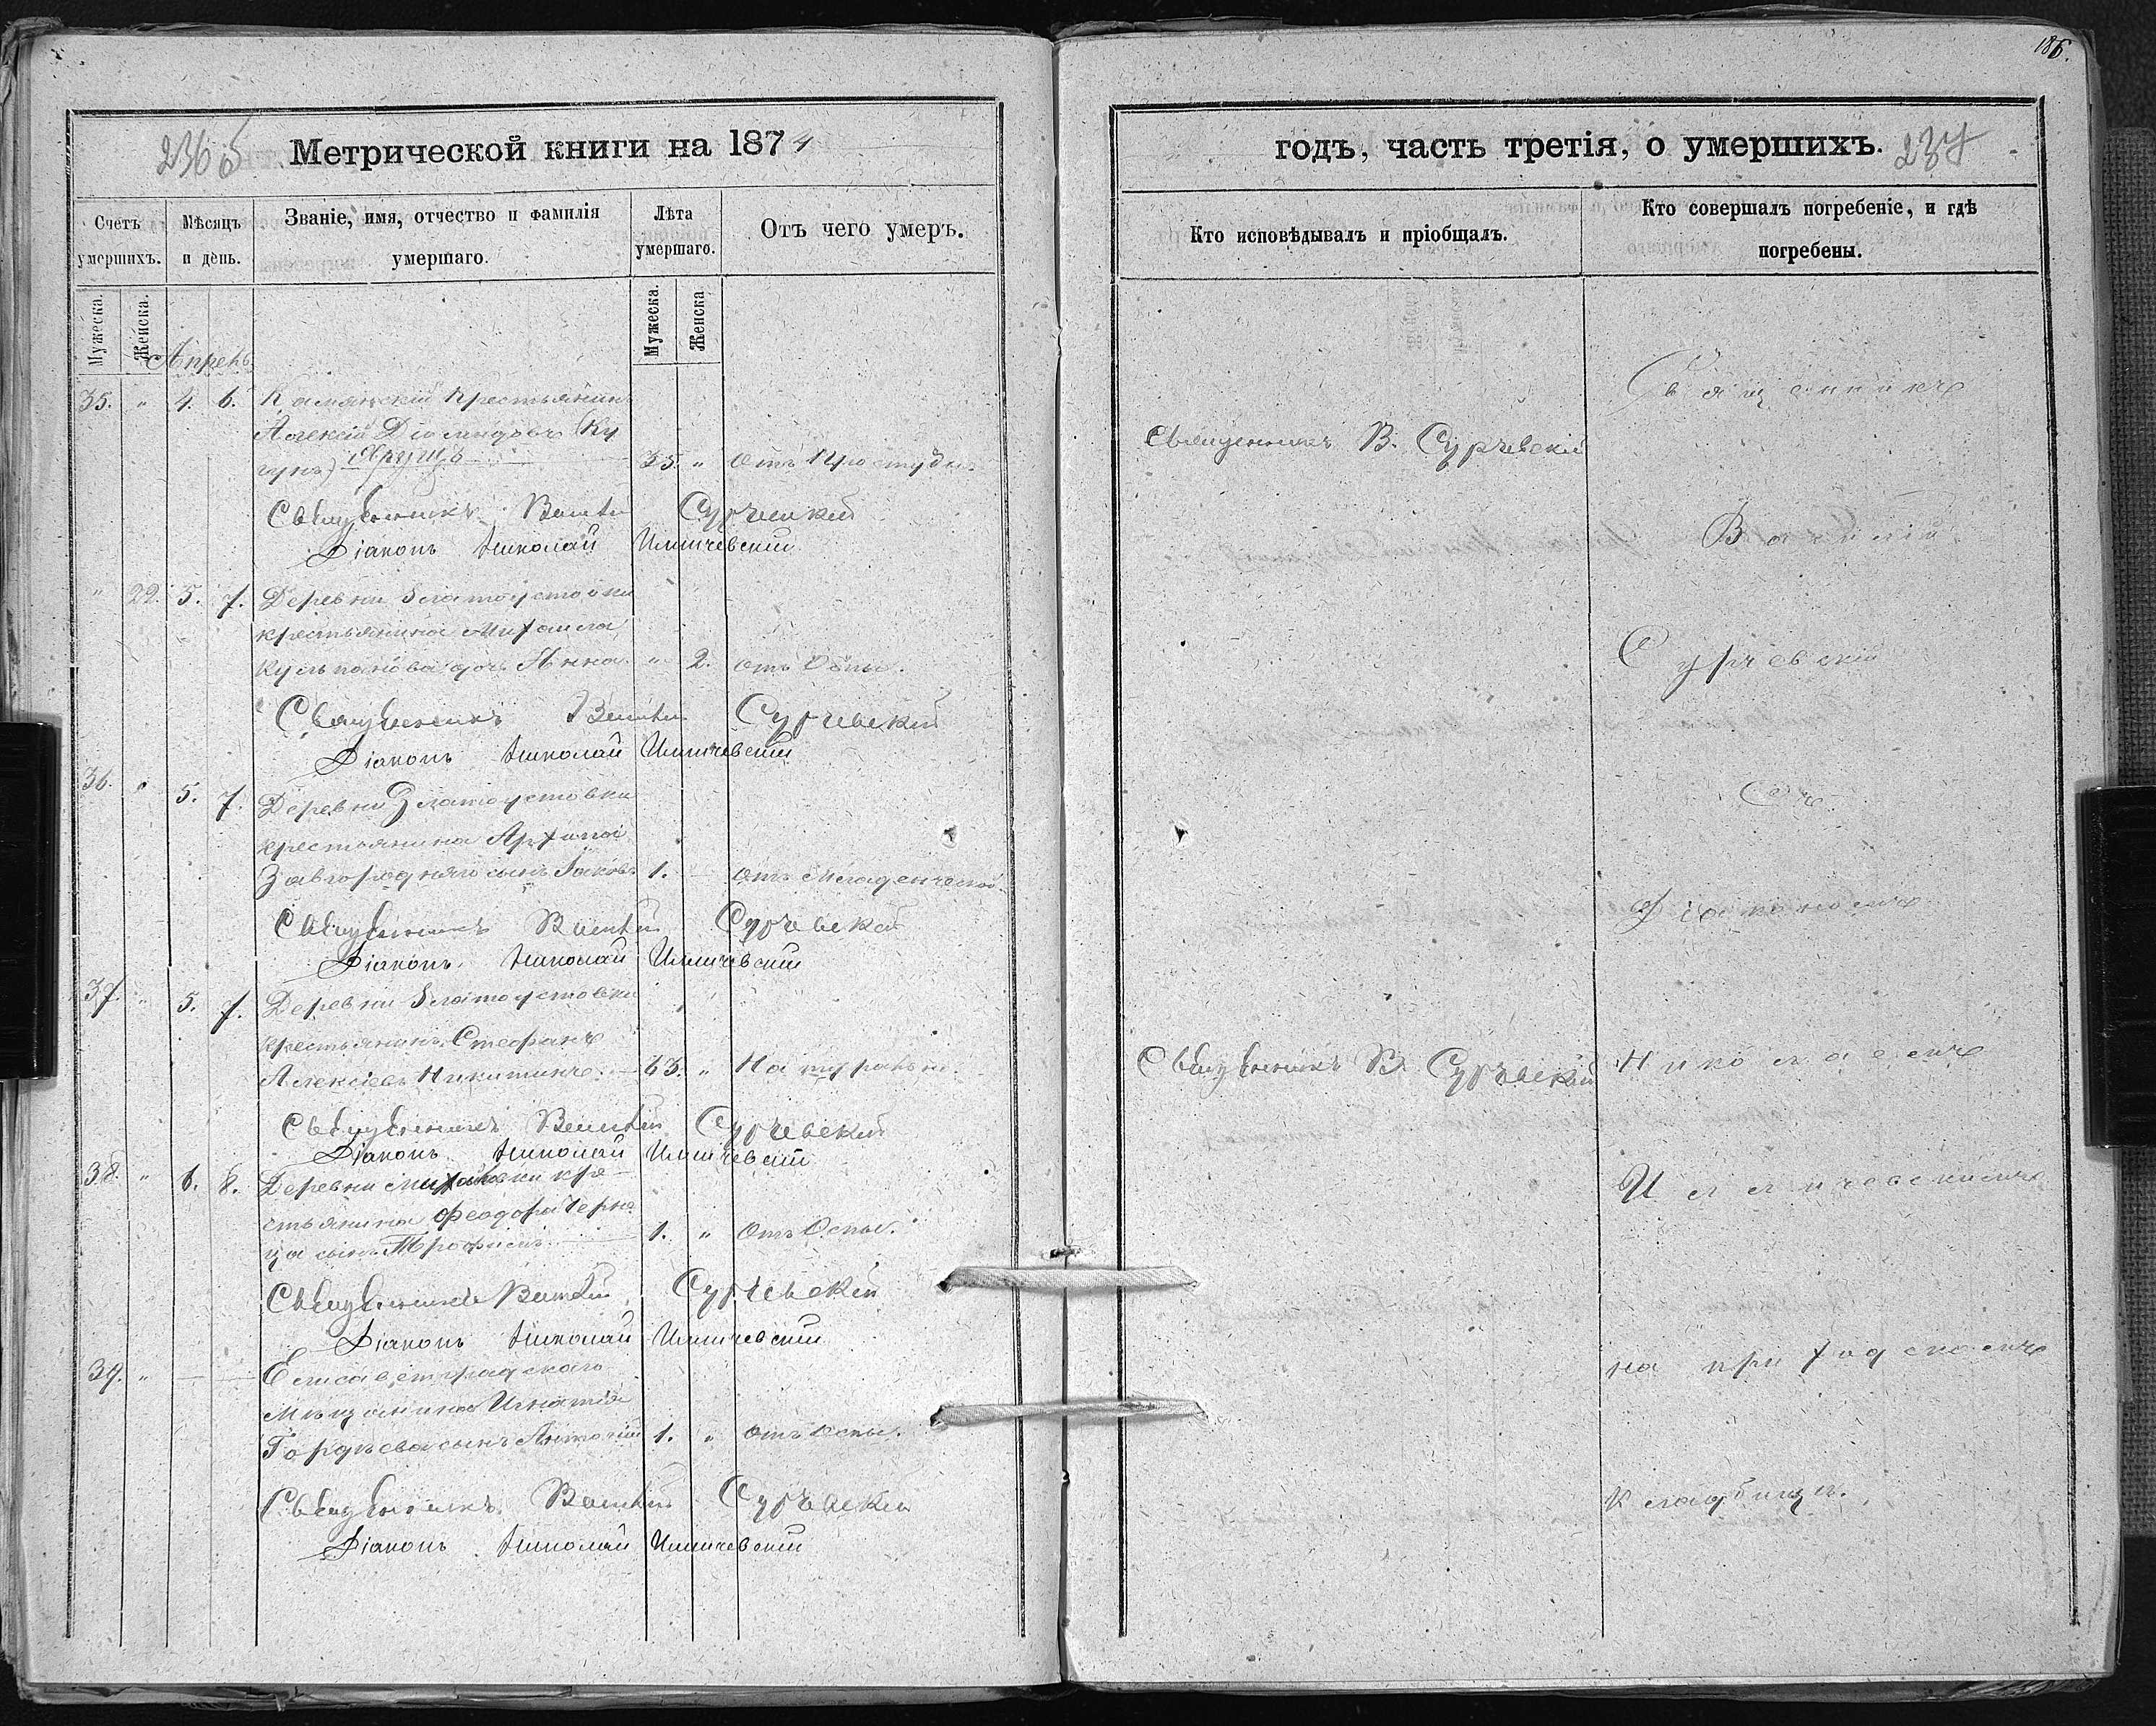 236 б
Метрической книги на 1874
Счетъ умершихъ.
Мѣсяцъ и день.
Званіе, имя, отчество и фамилія умершаго.
Лѣта умершаго.
Отъ чего умеръ.
Мужеска.
Женска.
Мужеска.
Женска
Апрель
35. " 4. 6. Камянскій Крестьянинъ
Алексій
35. " отъ
Священникъ Василій Сурчевскій
Діаконъ Николай Илличевскій
" 22. 5. 7. Деревни Златоустовки
крестьянина Михаила
доч. Анна. " 2. отъ Оспы.
Священникъ Василій Сурчевскій
Діаконъ Николай Илличевскій
36. " 5. 7. Деревни Златоустовки
крестьянина Архипа
Завгородняго сынъ Іаковъ 1. отъ Младенческой.
Священникъ Василій Сурчевскій
Діаконъ Николай Илличевскій
37. " 5. 7. Деревни Златоустовки
крестьянинъ Стефанъ
Алексіевъ Никитинъ. 63. " Натурально.
Священникъ Василій Сурчевскій
Діаконъ Николай Илличевскій
38. " 6. 8. Деревни Михайловки кре
стьянина Феодора Черне
ца сынъ Трофимъ 1. " Отъ Оспы.
Священникъ Василій Сурчевскій
Діаконъ Николай Илличевскій
39. " — — Елисаветградскаго
Мѣщанина Игнатія
Гордѣева сынъ Антоній 1. " отъ Оспы.
Священникъ Василій Сурчевскій
Діаконъ Николай Илличевскій
186.
годъ, часть третія, о умершихъ. 237
Кто исповѣдывалъ и пріобщалъ.
Кто совершалъ погребеніе, и гдѣ
погребены.
Священникъ
Священникъ В. Сурчевскій
Василій
Сурчевскій
Съ
Діакономъ
Священникъ В. Сурчевскій
Николаемъ
Илличевскимъ
на приходскомъ
Кладбищѣ.